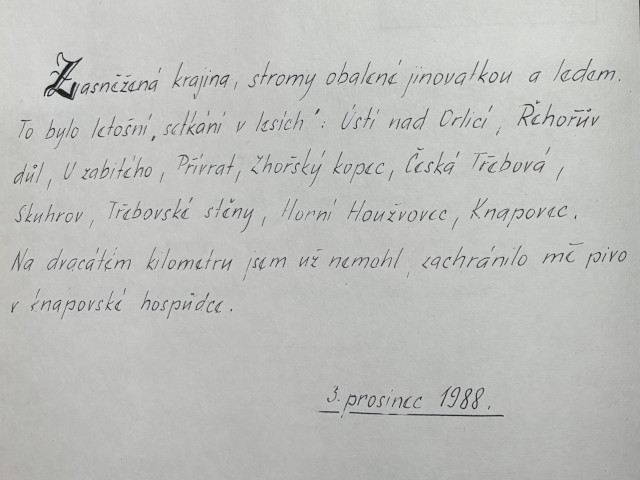 Zasněžená krajina, stromy obalené jinovatkou a ledem.
To bylo letošní „setkání v lesích": Ústí nad Orlicí, Řehořův
důl, U zabitého, Přívrat, Zhořský kopec, Česká Třebová,
Skuhrov, Třebovské stěny, Horní Houžvovec, Knapovec.
Na dvacátém kilometru jsem už nemohl, zachránilo mě pivo
v knapovské hospůdce.
3. prosinec 1988.